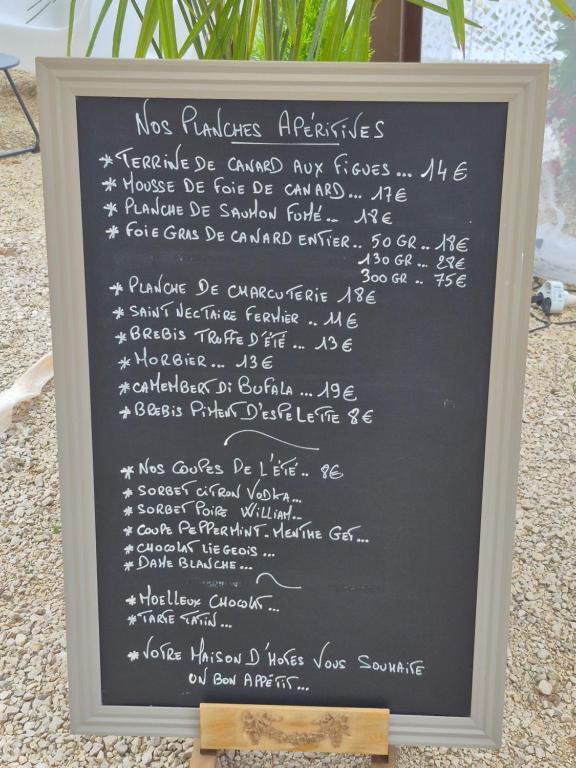 NOS PLANCHES APÉRITIVES
* TERRINE DE CANARD AUX FIGUES... 14€
* MOUSSE DE FOIE DE CANARD... 17€
* PLANCHE DE SAUMON FUMÉ.. 18€
* FOIE GRAS DE CANARD ENTIER.. 50 GR.. 18€
130 GR.. 28€
300 GR.. 75€
* PLANCHE DE CHARCUTERIE 18€
* SAINT NECTAIRE FERMIER.. 11€
* BREBIS TRUFFE D'ÉTÉ... 13€
* MORBIER... 13€
* CAMEMBERT DI BUFALA... 19€
* BREBIS PIMENT D'ESPELETTE 8€
* NOS COUPES DE L'ÉTÉ.. 8€
* SORBET CITRON VODKA...
* SORBET POIRE WILLIAM...
* COUPE PEPPERMINT-MENTHE GET...
* CHOCOLAT LIEGEOIS...
* DAME BLANCHE...
* MOELLEUX CHOCOLAT...
* TARTE TATIN...
* VOTRE MAISON D'HOTES VOUS SOUHAITE
UN BON APPÉTIT...